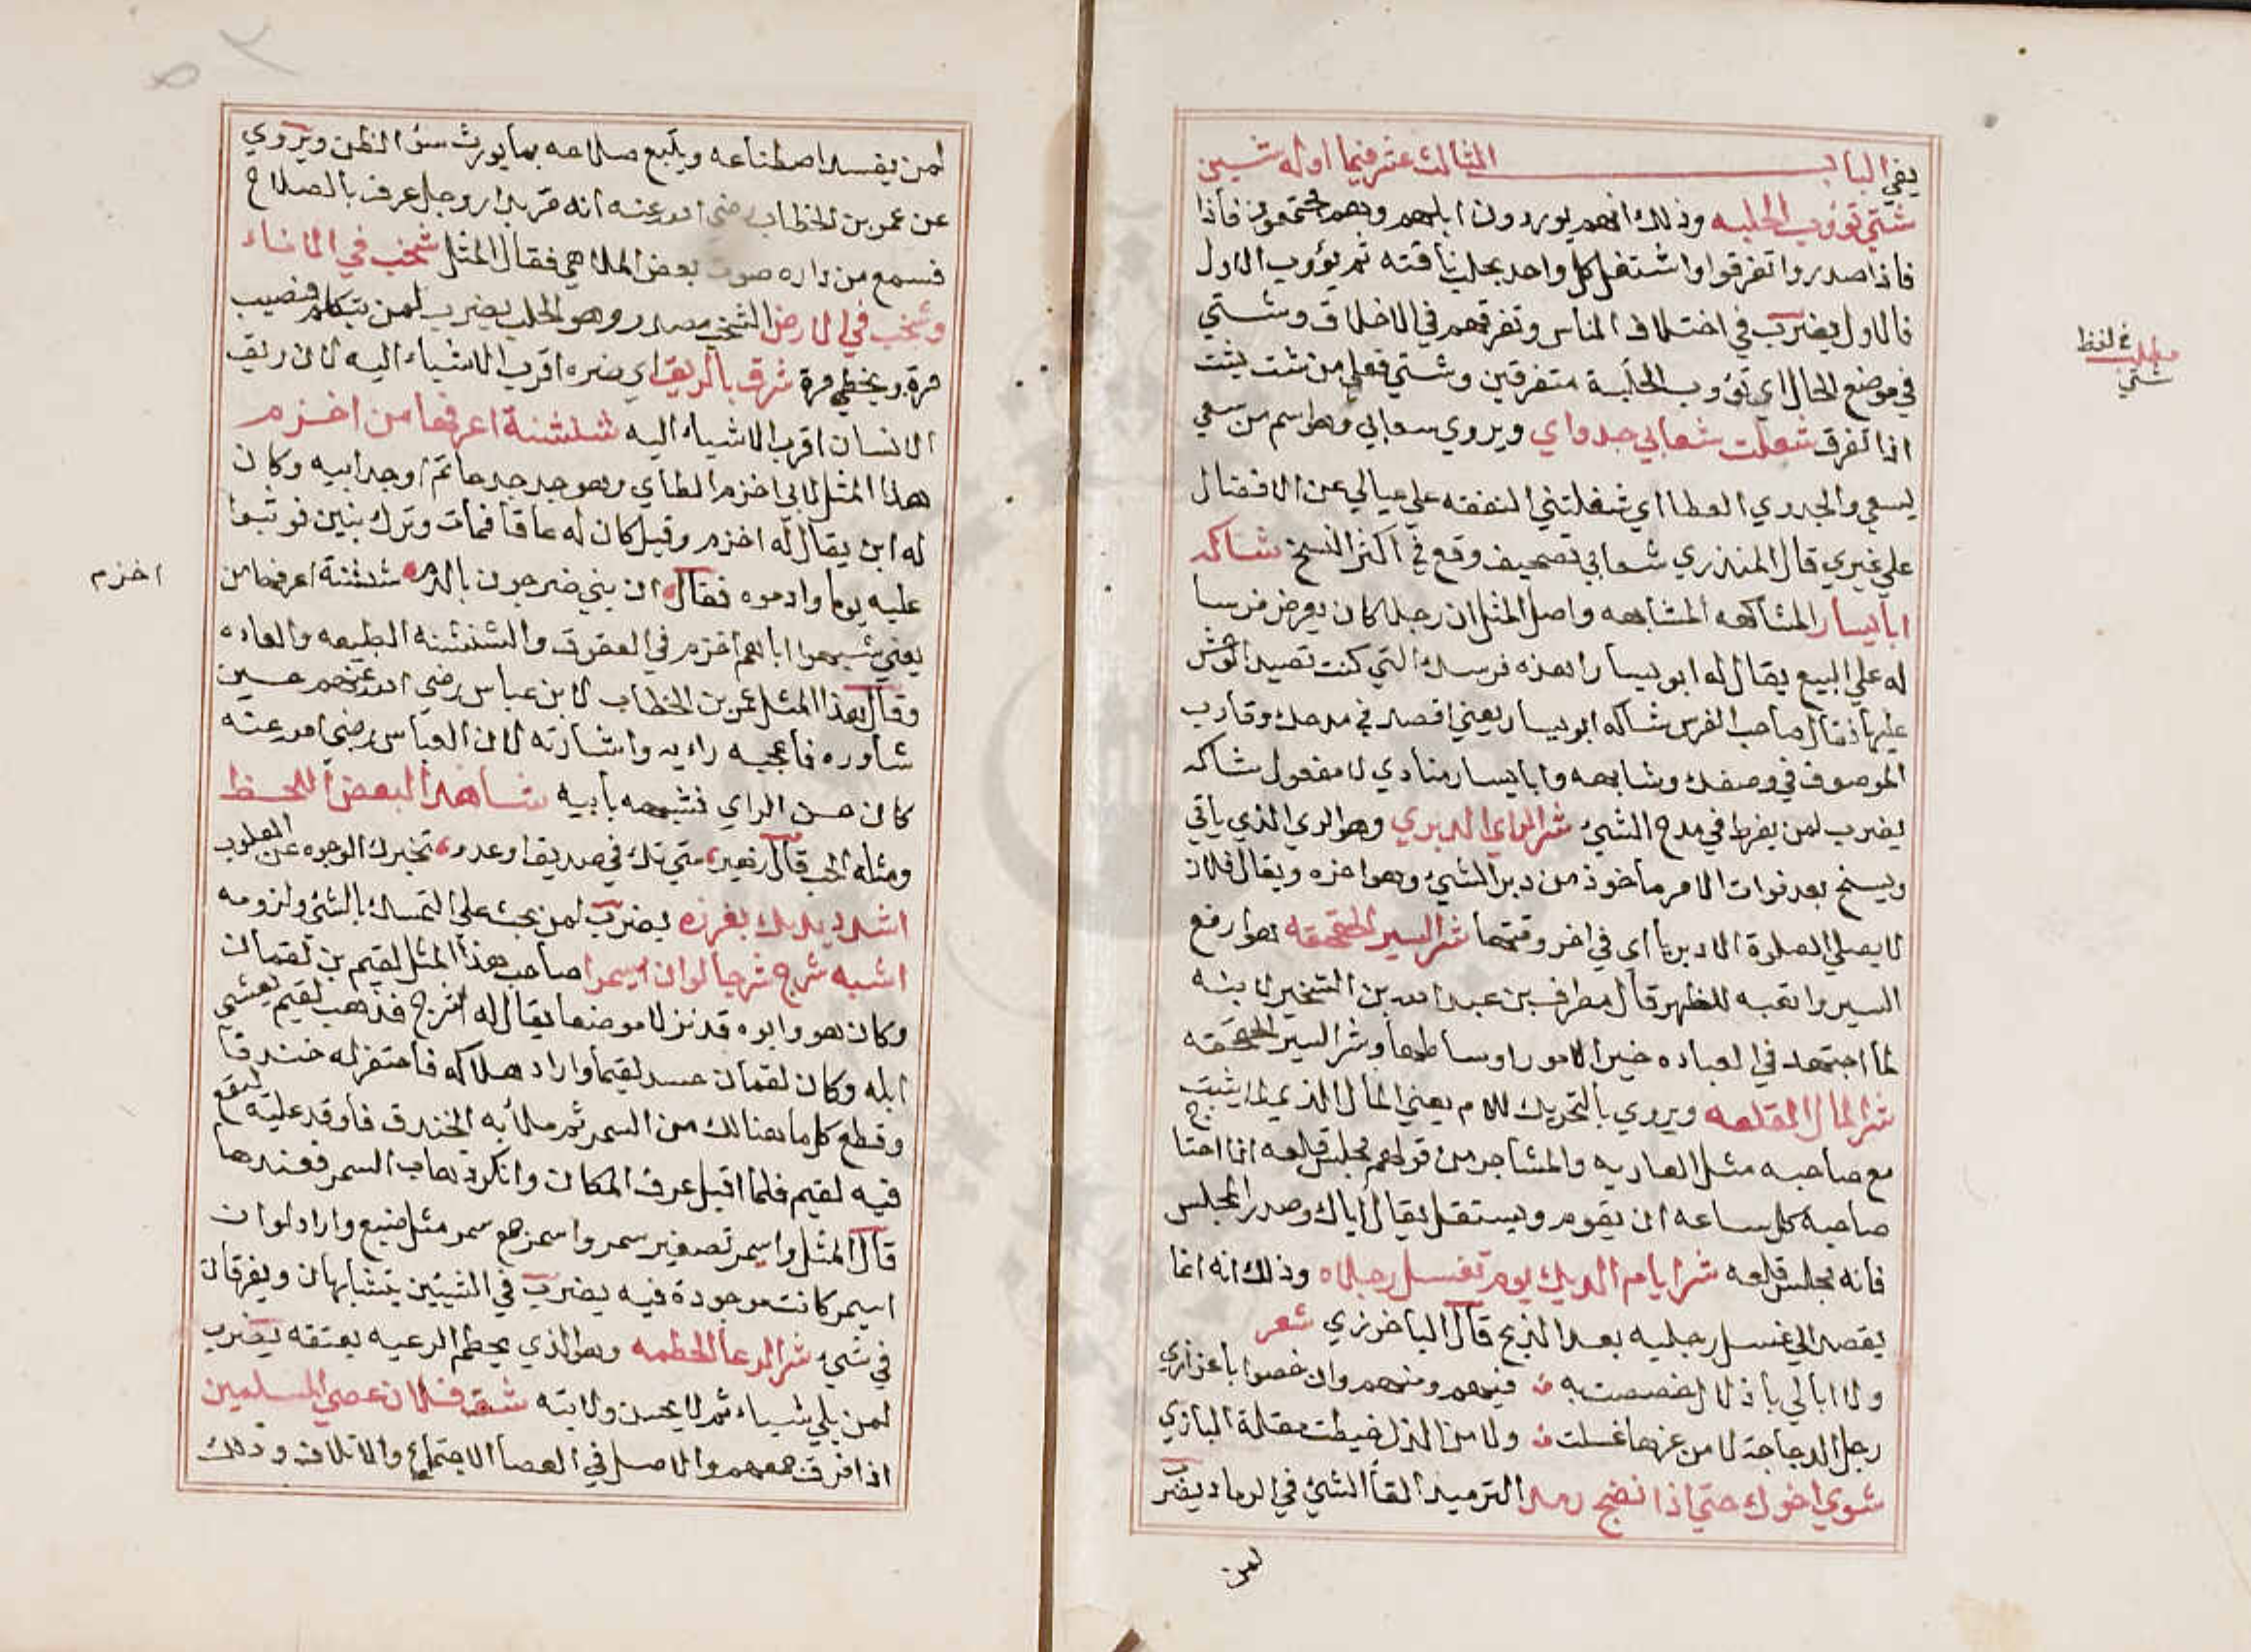 يفي الباب الثالث عشر فيما اوله شين
شتي تؤوب الحلبه وذلك انهم يوردون ابلهم وهم مجتمعون فاذا
فاذا صدروا تفرقوا واشتغل كل واحد بحلب ناقته ثم يؤوب الاول
فالاول يضرب في اختلاف الناس وتفرقهم في الاخلاق وشتي
في موضع الحال اي تؤوب الحلبة متفرقين وشتي فعلي من شت يشت
اذا تفرق شغلت شعابي جدواي ويروي سعابي وهو اسم من سعي
يسعي والجدوي العطا اي شغلتني النفقه علي عيالي عن الافضال
علي غيري قال المنذري شعابي تصحيف وقع في اكثر النسخ شاكه
ابا يسار المشاكهه المشابهه واصل المثل ان رجلا كان يعرض فرسا
له علي البيع يقال له ابو يسار اهذه فرسك التي كنت تصيد الوحش
عليها فقال صاحب الفرس شاكه ابو يسار يعني اقصد في مدحك وقارب
الموصوف في وصفك وشابهه وابا يسار منادي لا مفعول شاكه
يضرب لمن يفرط في مدح الشئ شر الراي الدبري وهو الري الذي ياتي
ويسنح بعد فوات الامر ماخوذ من دبر الشئ وهو اخره ويقال فلان
لا يصلي الصلوة الا دبريا اي في اخر وقتها شر السير الحقحقه هو ارفع
السير واتعبه للظهر قال مطرف بن عبد الله بن الشخير لابنه
لما اجتهد في العباده خير الامور اوساطها وشر السير الحقحقه
شر المال القلعه ويروي بالتحريك للام يعني المال الذي لا يثبت
مع صاحبه مثل العاريه والمشاجر من قولهم مجلس قلعه اذا احتاج
صاحبه كل ساعه ان يقوم ويستقل يقال اياك وصدر المجلس
فانه مجلس قلعه شر ايام الديك يوم تغسل رجلاه وذلك انه انما
يقصد الي غسل رجليه بعد الذبح قال الباخرزي شعر
ولا ابالي باذلال خصصت به فيهم ومنهم وان خصوا باعزازي
رجل الدجاجة لا من عزها غسلت ولا من الذل خيطت مقلة البازي
شوي اخوك حتي اذا نضج رمد الترميد القا الشئ في الرماد يضرب
لمن
في لفظ
مطلب
شتي
لمن يفسد اصطناعه ويتبع صلاحه بما يورث سؤ الظن ويروي
عن عمر بن الخطاب رضي الله عنه انه مر بدار رجل عرف بالصلاح
فسمع من داره صوت بعض الملاهي فقال المثل شخب في الاناء
وشخب في الارض الشخب مصدر وهو الحلب يضرب لمن يتكلم فيصيب
مرة ويخطي مرة شرق بالريق اي ضره اقرب الاشياء اليه لان ريق
الانسان اقرب الاشياء اليه شنشنة اعرفها من اخزم
هذا المثل لابي اخزم الطاي وهو جد جد حاتم او جد ابيه وكان
له ابن يقال له اخزم وقيل كان له عاقا فمات وترك بنين فوثبوا
عليه يوما وادموه فقال ان بني ضرجون بالدم شنشنة اعرفها من
يعني شبهوا اباهم اخزم في العقوق والشنشنه الطبيعه والعاده
وقال بهذا المثل عمر بن الخطاب لابن عباس رضي الله عنهم حين
شاوره فاعجبه رايه واشارته لان العباس رضي الله عنه
كان حسن الراي فشبهه بابيه شاهد البعض اللحظ
ومثله الحب قال زهير متي تك في صديق او عدو تخبرك الوجوه عن القلوب
اشدد يديك بغرزه يضرب لمن يحث علي التمسك بالشئ ولزومه
اشبه شرج شرجا لو ان اسيمرا صاحب هذا المثل لقيم بن لقمان
وكان هو وابوه قد نزلا موضعا يقال له شرج فذهب لقيم يعشي
ابله وكان لقمان حسد لقيما واراد هلاكه فاحتفر له خندقا
وقطع كل ما هنالك من السمر ثم ملا به الخندق فاوقد عليه ليقع
فيه لقيم فلما اقبل عرف المكان وانكر ذهاب السمر فعندها
قال المثل واسيمر تصغير سمر واسمر جمع سمر مثل ضبع واراد لو ان
اسيمر كانت موجودة فيه يضرب في الشيئين يتشابهان ويفرقان
في شئ شر الرعا الحطمه وهو الذي يحطم الرعيه بعنفه يضرب
لمن يلي شياء ثم لا يحسن ولايته شق فلان عصي المسلمين
اذا فرق جمعهم والاصل في العصا الاجتماع والائتلاف وذلك
اخزم